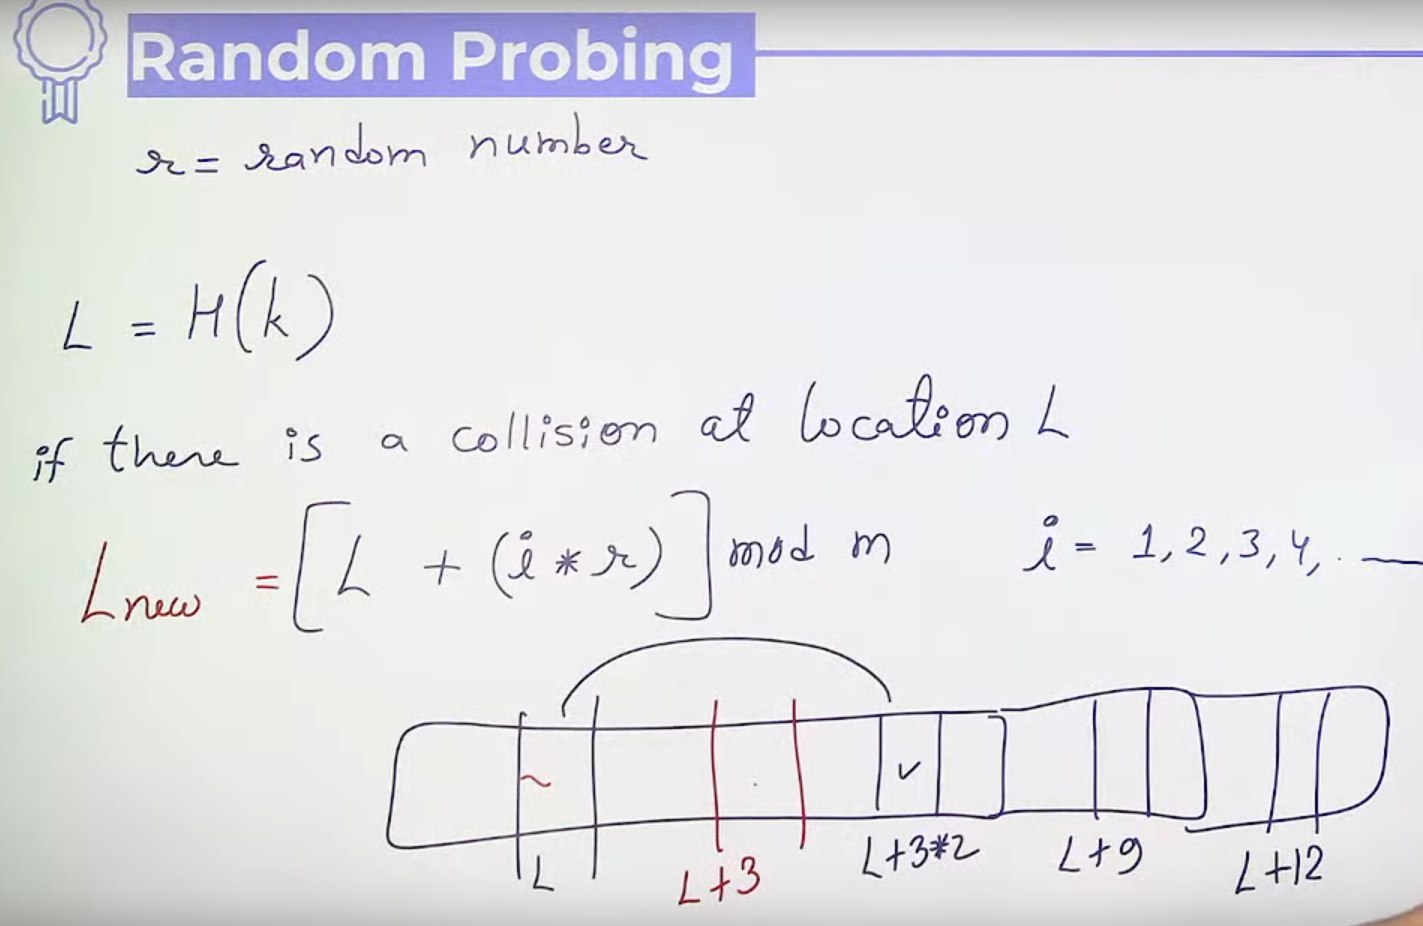 Random Probing
r = random number
L = H(k)
if there is a collision at location L
Lnew = [L + (i * r)] mod m i = 1, 2, 3, 4, . —
L L+3 L+3*2 L+9 L+12